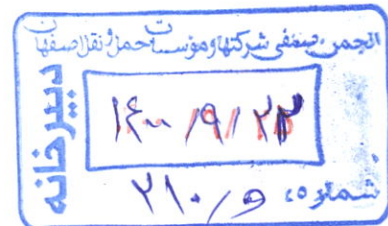 انجمن صنفی شرکتها و مؤسسات حمل و نقل اصفهان
دبیرخانه
۱۴۰۰/۹/۲۳
شماره: ۲۱۰/و